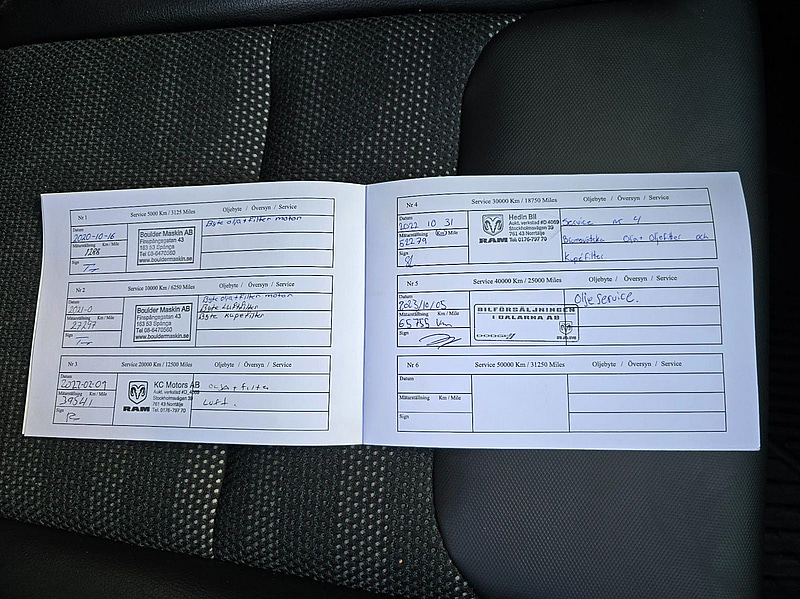 Nr 1 Service 5000 Km / 3125 Miles Oljebyte / Översyn / Service
Datum
2020-10-16
Mätarställning Km / Mile
1288
Sign
Boulder Maskin AB
Finspångsgatan 43
163 53 Spånga
Tel 08-6470560
www.bouldermaskin.se
Byte olja + filter motor
Nr 2 Service 10000 Km / 6250 Miles Oljebyte / Översyn / Service
Datum
2021-0
Mätarställning Km / Mile
27297
Sign
Boulder Maskin AB
Finspångsgatan 43
163 53 Spånga
Tel 08-6470560
www.bouldermaskin.se
Byte olja + filter motor
Byte Luftfilter
Byte Kupefilter
Nr 3 Service 20000 Km / 12500 Miles Oljebyte / Översyn / Service
Datum
2022-02-09
Mätarställning Km / Mile
39541
Sign
RAM
KC Motors AB
Aukt. verkstad #D_4069
Stockholmsvägen 39
761 43 Norrtälje
Tel. 0176-797 70
olja + filter
Luft.
Nr 4 Service 30000 Km / 18750 Miles Oljebyte / Översyn / Service
Datum
2022 10 31
Mätarställning Km / Mile
52279
Sign
RAM
Hedin Bil
Aukt. verkstad #D 4069
Stockholmsvägen 39
761 43 Norrtälje
Tel. 0176-797 70
Service nr 4
Olja + Oljefilter och
Kupefilter
Nr 5 Service 40000 Km / 25000 Miles Oljebyte / Översyn / Service
Datum
2023/10/05
Mätarställning Km / Mile
65755 Km
Sign
BILFÖRSÄLJNINGEN
I DALARNA AB
DODGE
RAM
Oljeservice.
Nr 6 Service 50000 Km / 31250 Miles Oljebyte / Översyn / Service
Datum
Mätarställning Km / Mile
Sign